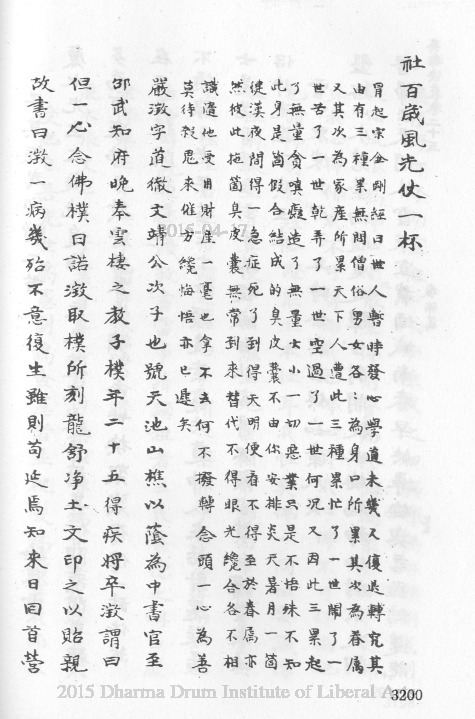 社百歲風光仗一杯
胃起宗金剛經曰世人暫時發心學道未幾又復退轉究其
由有三種累無間僧俗男女各各為身口所累其次為眷屬
又其次為家產所累天下人遭此三種累忙了一世鬧了一
世苦了一世乾弄了一世空過了一世何況又因此三累起
了無量貪嗔癡造了無量大小一切惡業只是不怕殊不知
此身是箇假合結成的臭皮囊不由你安排炎天暑月一箇
健漢夜間得一急症死了到得天明便看不得至於眷屬亦
然彼此拖箇臭皮囊無常到來替代不得眼光纔合各不相
識遺他受用財產一毫也拿不去何不撥轉念頭一心為善
莫待殺鬼來催方纔悔悟亦已遲矣
嚴澂字道徹文靖公次子也號天池山樵以蔭為中書官至
邵武知府晚奉雲棲之教子樸年二十五得疾將卒澂謂曰
但一心念佛樸曰諾澂取樸所刻龍舒淨土文印之以貽親
故書曰澂一病幾殆不意復生雖則苟延焉知來日回首營
2016-04-17
2015 Dharma Drum Institute of Liberal A
3200